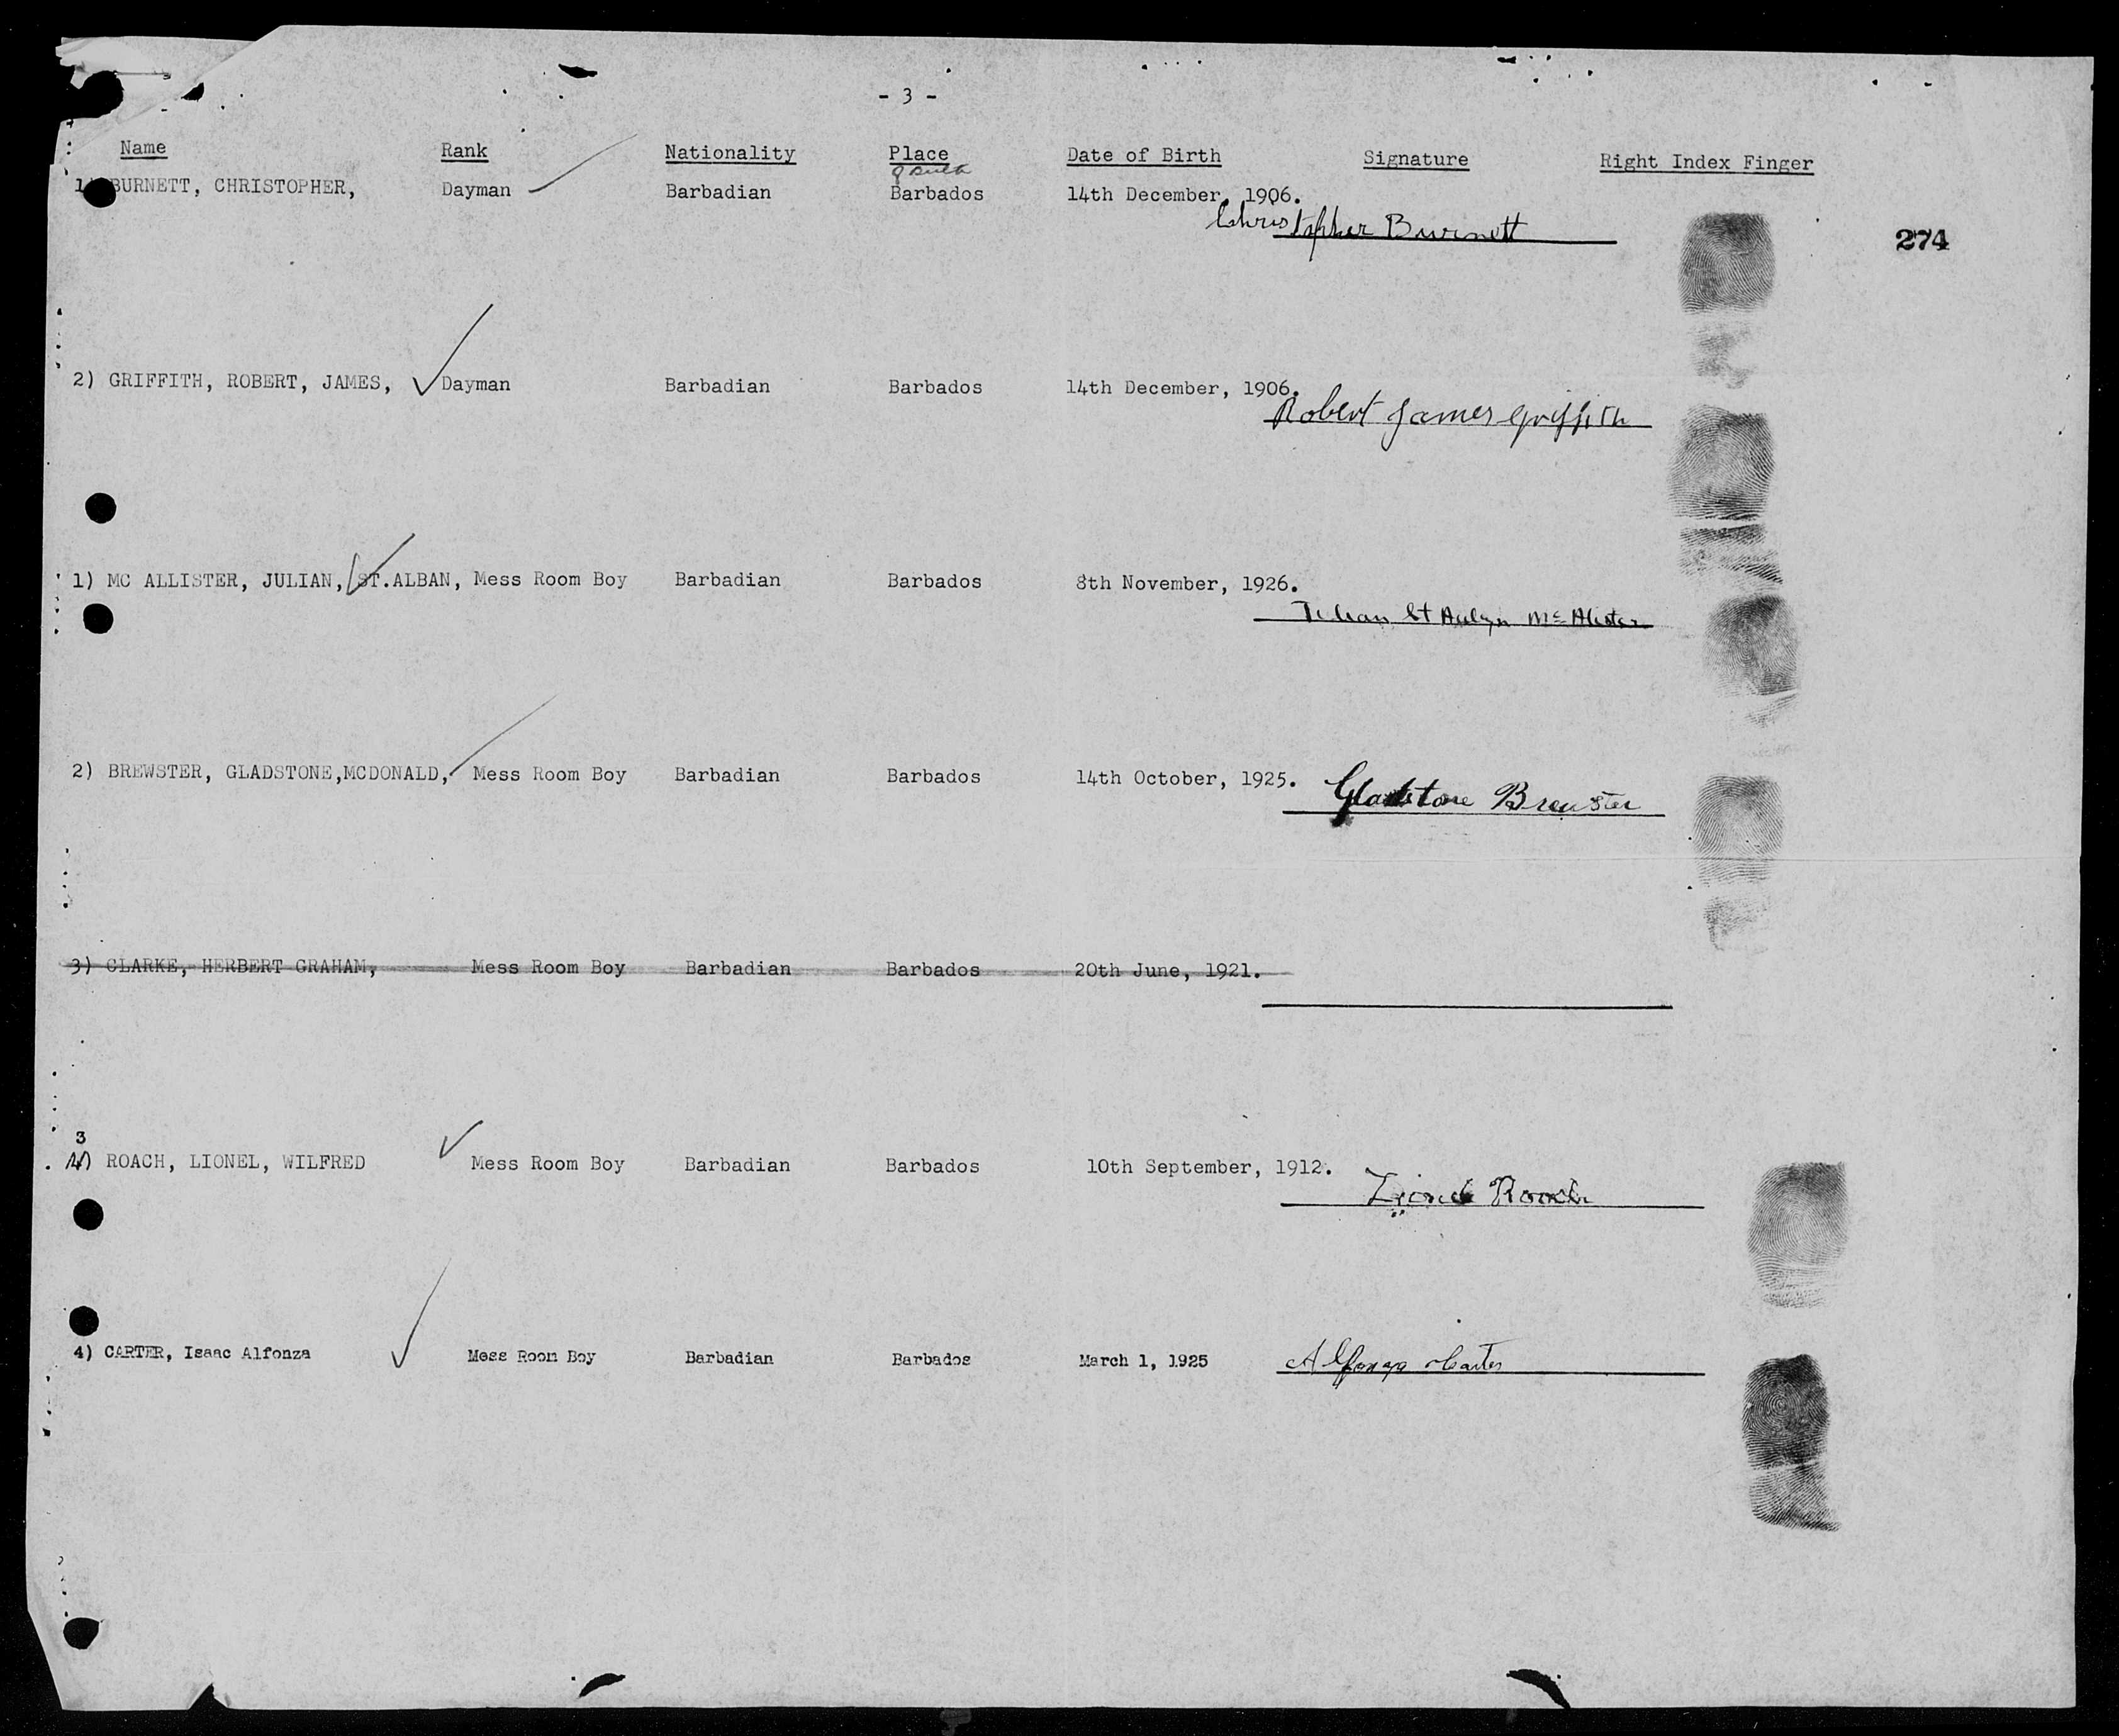 - 3 -
Name Rank Nationality Place Date of Birth Signature Right Index Finger
of Birth
1) BURNETT, CHRISTOPHER, Dayman Barbadian Barbados 14th December, 1906.
Christopher Burnett
274
2) GRIFFITH, ROBERT, JAMES, Dayman Barbadian Barbados 14th December, 1906.
Robert James Griffith
1) MC ALLISTER, JULIAN, ST.ALBAN, Mess Room Boy Barbadian Barbados 8th November, 1926.
St Mc Alister
2) BREWSTER, GLADSTONE,MCDONALD, Mess Room Boy Barbadian Barbados 14th October, 1925.
Gladstone Brewster
3) CLARKE, HERBERT GRAHAM, Mess Room Boy Barbadian Barbados 20th June, 1921.
3
4) ROACH, LIONEL, WILFRED Mess Room Boy Barbadian Barbados 10th September, 1912.
Lionel Roach
4) CARTER, Isaac Alfonza Mess Room Boy Barbadian Barbados March 1, 1925
Alfonza Carter